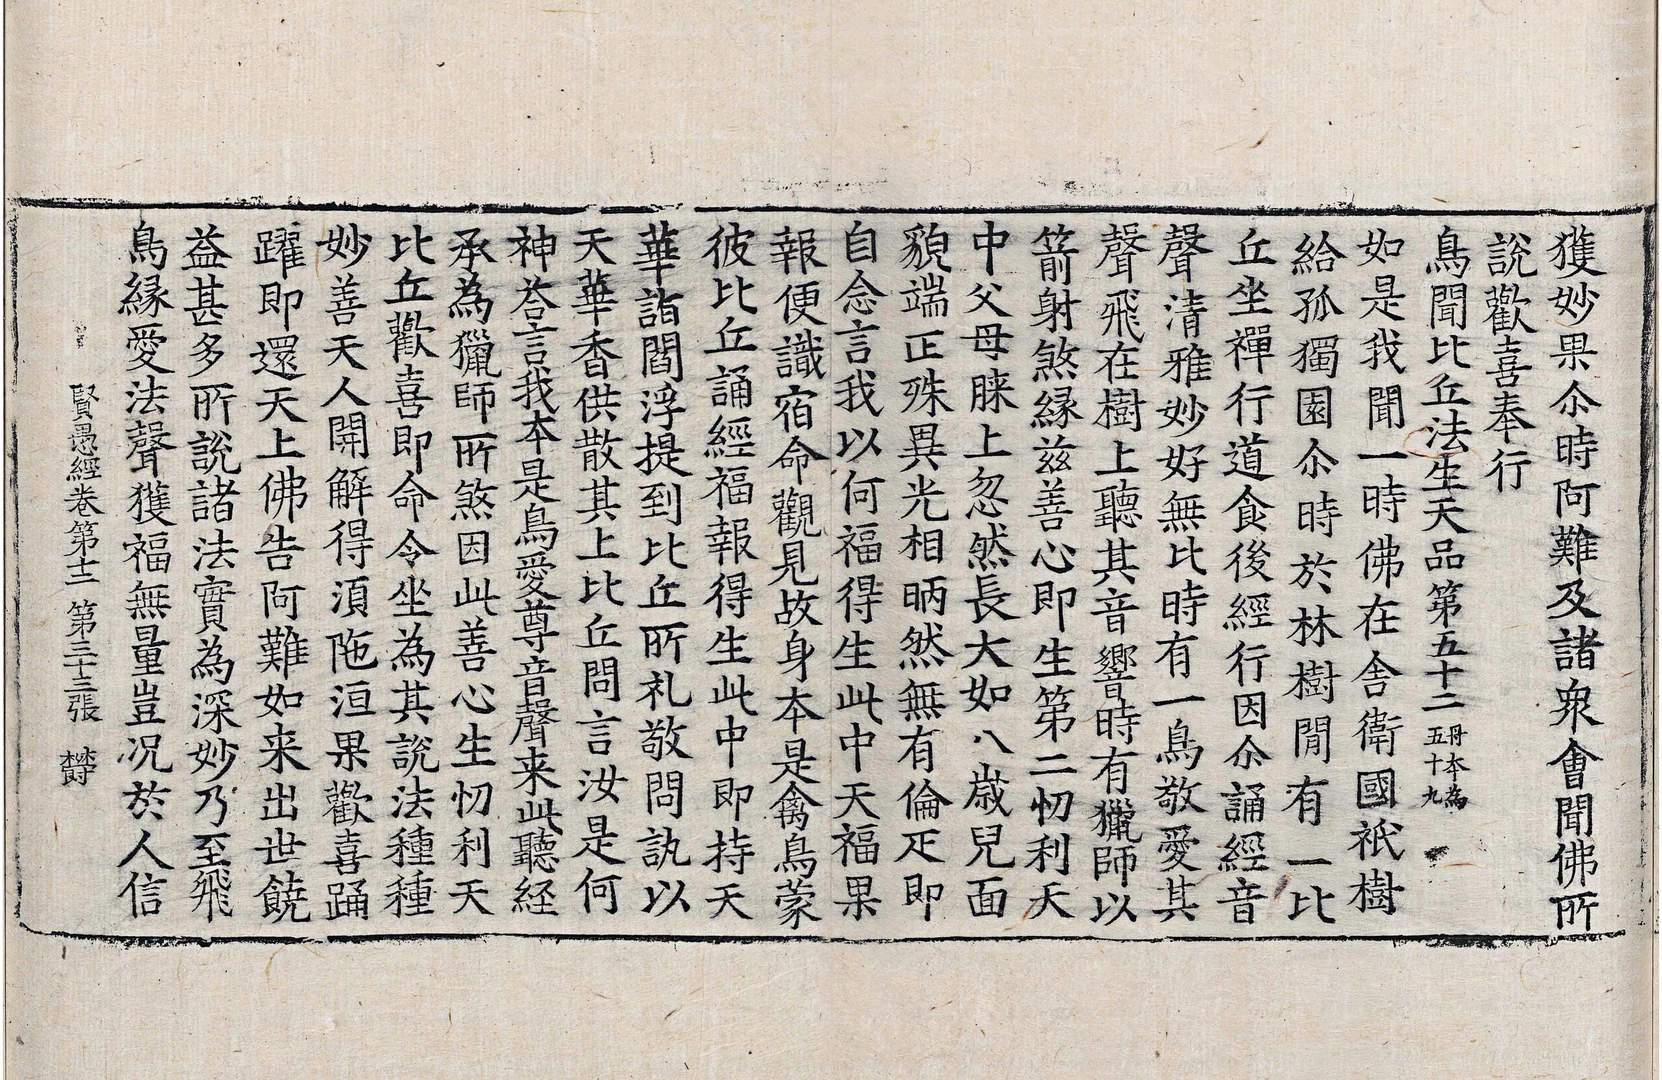 獲妙果尒時阿難及諸衆會聞佛所
說歡喜奉行
鳥聞比丘法生天品第五十二丹本為五十九
如是我聞一時佛在舍衛國祇樹
給孤獨園尒時於林樹閒有一比
丘坐禪行道食後經行因尒誦經音
聲清雅妙好無比時有一鳥敬愛其
聲飛在樹上聽其音響時有獵師以
箭射煞緣茲善心即生第二忉利天
中父母䐗上忽然長大如八歲兒面
貌端正殊異光相昞然無有倫疋即
自念言我以何福得生此中天福果
報便識宿命觀見故身本是禽鳥蒙
彼比丘誦經福報得生此中即持天
華詣閻浮提到比丘所礼敬問訊以
天華香供散其上比丘問言汝是何
神荅言我本是鳥愛尊音聲来此聽経
承為獵師所煞因此善心生忉利天
比丘歡喜即命令坐為其說法種種
妙善天人開解得湏陁洹果歡喜踊
躍即還天上佛告阿難如来出世饒
益甚多所說諸法實為深妙乃至飛
鳥緣愛法聲獲福無量豈况於人信
賢愚經卷第十二 第三十三張